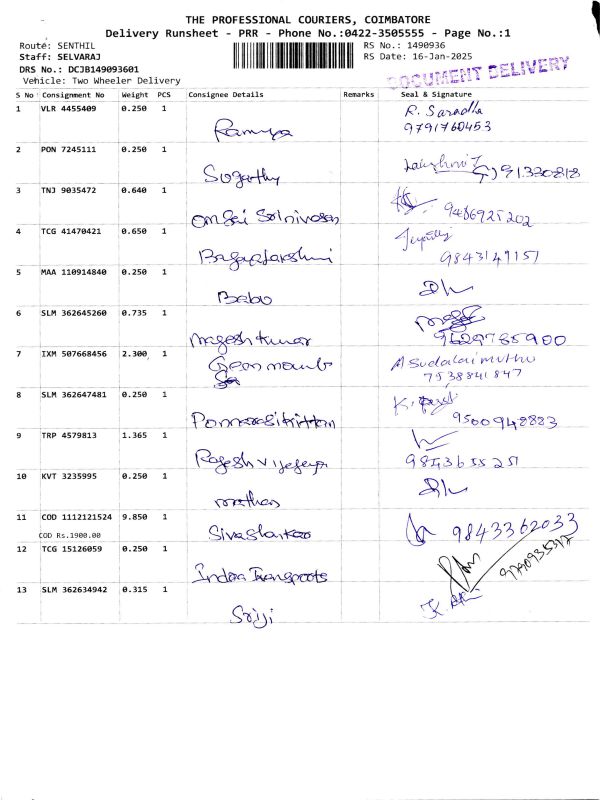 THE PROFESSIONAL COURIERS, COIMBATORE
Delivery Runsheet - PRR - Phone No.:0422-3505555 - Page No.:1
Route: SENTHIL
RS No.: 1490936
Staff: SELVARAJ
RS Date: 16-Jan-2025
DRS No.: DCJB149093601
DOCUMENT DELIVERY
Vehicle: Two Wheeler Delivery
S No Consignment No Weight PCS Consignee Details Remarks Seal & Signature
1 VLR 4455409 0.250 1 R. Saradha
Ramya 9791760453
2 PON 7245111 0.250 1
Suganthy
3 TNJ 9035472 0.640 1
Om Sai Srinivasan 9486925202
4 TCG 41470421 0.650 1
Bagyalakshmi 9843149151
5 MAA 110914840 0.250 1
Babu
6 SLM 362645260 0.735 1
Magesh kumar 9629785900
7 IXM 507668456 2.300 1 M Sudalaimuthu
Green 7538841847
8 SLM 362647481 0.250 1
9500948883
9 TRP 4579813 1.365 1
Rajesh
10 KVT 3235995 0.250 1
mathan
11 COD 1112121524 9.850 1 9843362033
COD Rs.1900.00 Sivashankar
12 TCG 15126059 0.250 1
Indra Transports
13 SLM 362634942 0.315 1
Sriji